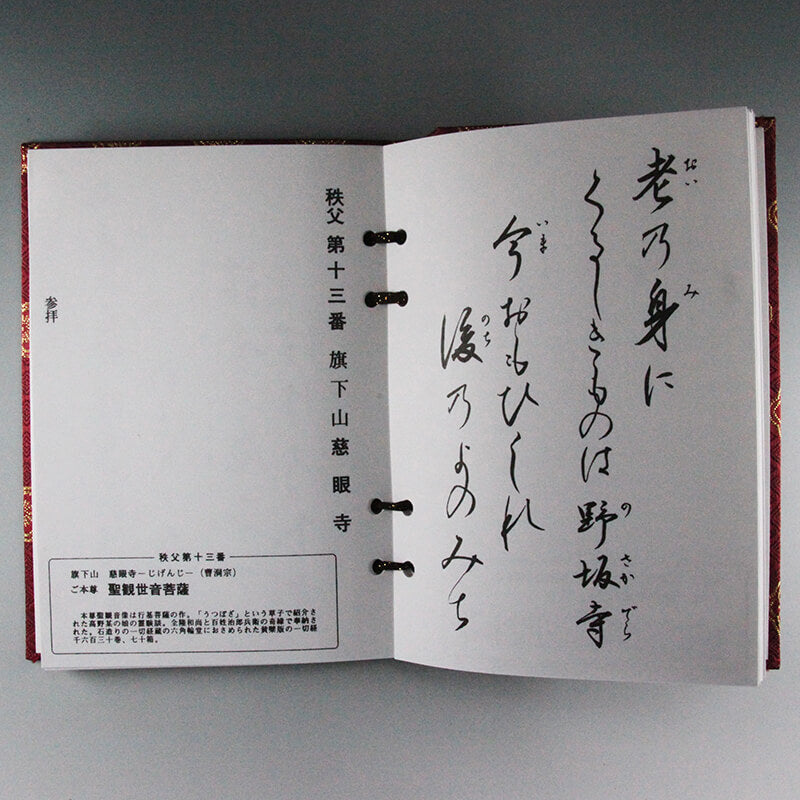 老乃身に
おい
み
くるしきものは野坂寺
の
さか
でら
今おもひしれ
いま
後乃よのみち
のち
秩父 第十三番 旗下山慈眼寺
参拝
秩父第十三番
旗下山 慈眼寺―じげんじ―(曹洞宗)
ご本尊 聖観世音菩薩
本尊聖観音像は行基菩薩の作。「うつぼざ」という草子で紹介さ
れた高野某の娘の霊験談。全陽和尚と百姓治郎兵衛の奇縁で奉納さ
れた。石造りの一切経蔵の六角輪堂におさめられた黄檗版の一切経
千六百三十巻、七十箱。